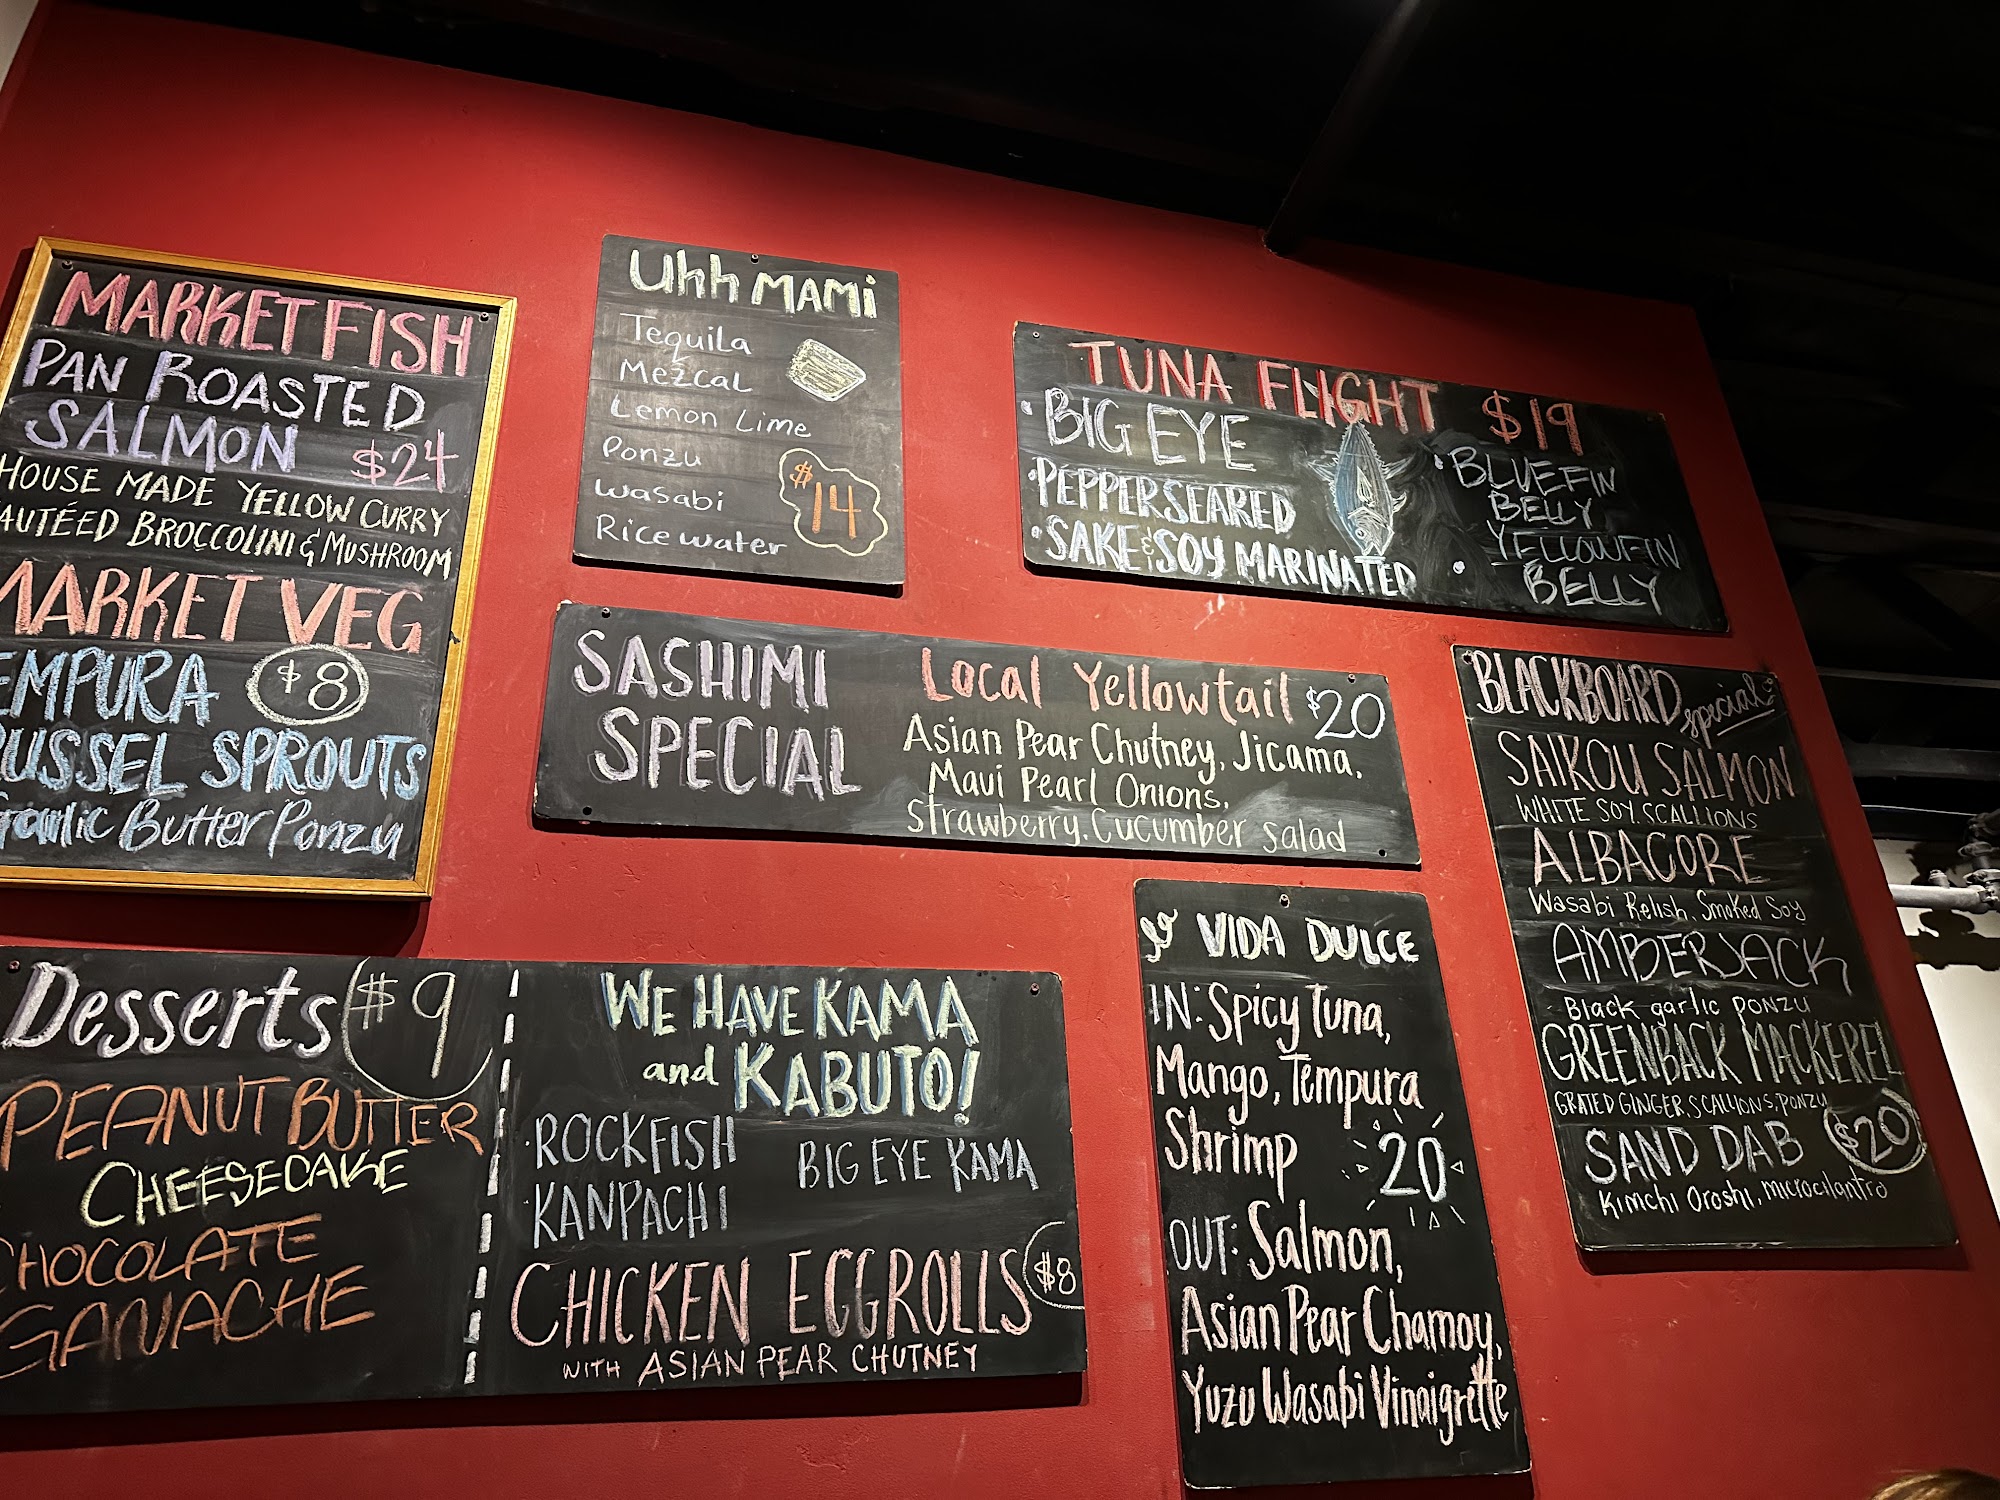 MARKET FISH
PAN ROASTED
SALMON $24
HOUSE MADE YELLOW CURRY
AUTÉED BROCCOLINI & MUSHROOM
MARKET VEG
EMPURA $8
RUSSEL SPROUTS
Garlic Butter Ponzu
Uhh MAMi
Tequila
Mezcal
Lemon Lime
Ponzu
Wasabi
Rice water
$14
TUNA FLIGHT $19
• BIG EYE
• PEPPERSEARED
• SAKE & SOY MARINATED
• BLUEFIN
BELLY
• YELLOWFIN
BELLY
SASHIMI
SPECIAL
Local Yellowtail $20
Asian Pear Chutney, Jicama,
Maui Pearl Onions,
Strawberry, Cucumber Salad
BLACKBOARD special
SAIKOU SALMON
WHITE SOY, SCALLIONS
ALBACORE
Wasabi Relish, Smoked Soy
AMBERJACK
Black garlic ponzu
GREENBACK MACKEREL
GRATED GINGER, SCALLIONS, PONZU
SAND DAB $20
Kimchi Oroshi, microcilantro
Desserts $9
PEANUT BUTTER
CHEESECAKE
CHOCOLATE
GANACHE
WE HAVE KAMA
and KABUTO!
• ROCKFISH
KANPACHI
BIG EYE KAMA
CHICKEN EGGROLLS $8
WITH ASIAN PEAR CHUTNEY
VIDA DULCE
IN: Spicy Tuna,
Mango, Tempura
Shrimp 20
OUT: Salmon,
Asian Pear Chamoy,
Yuzu Wasabi Vinaigrette